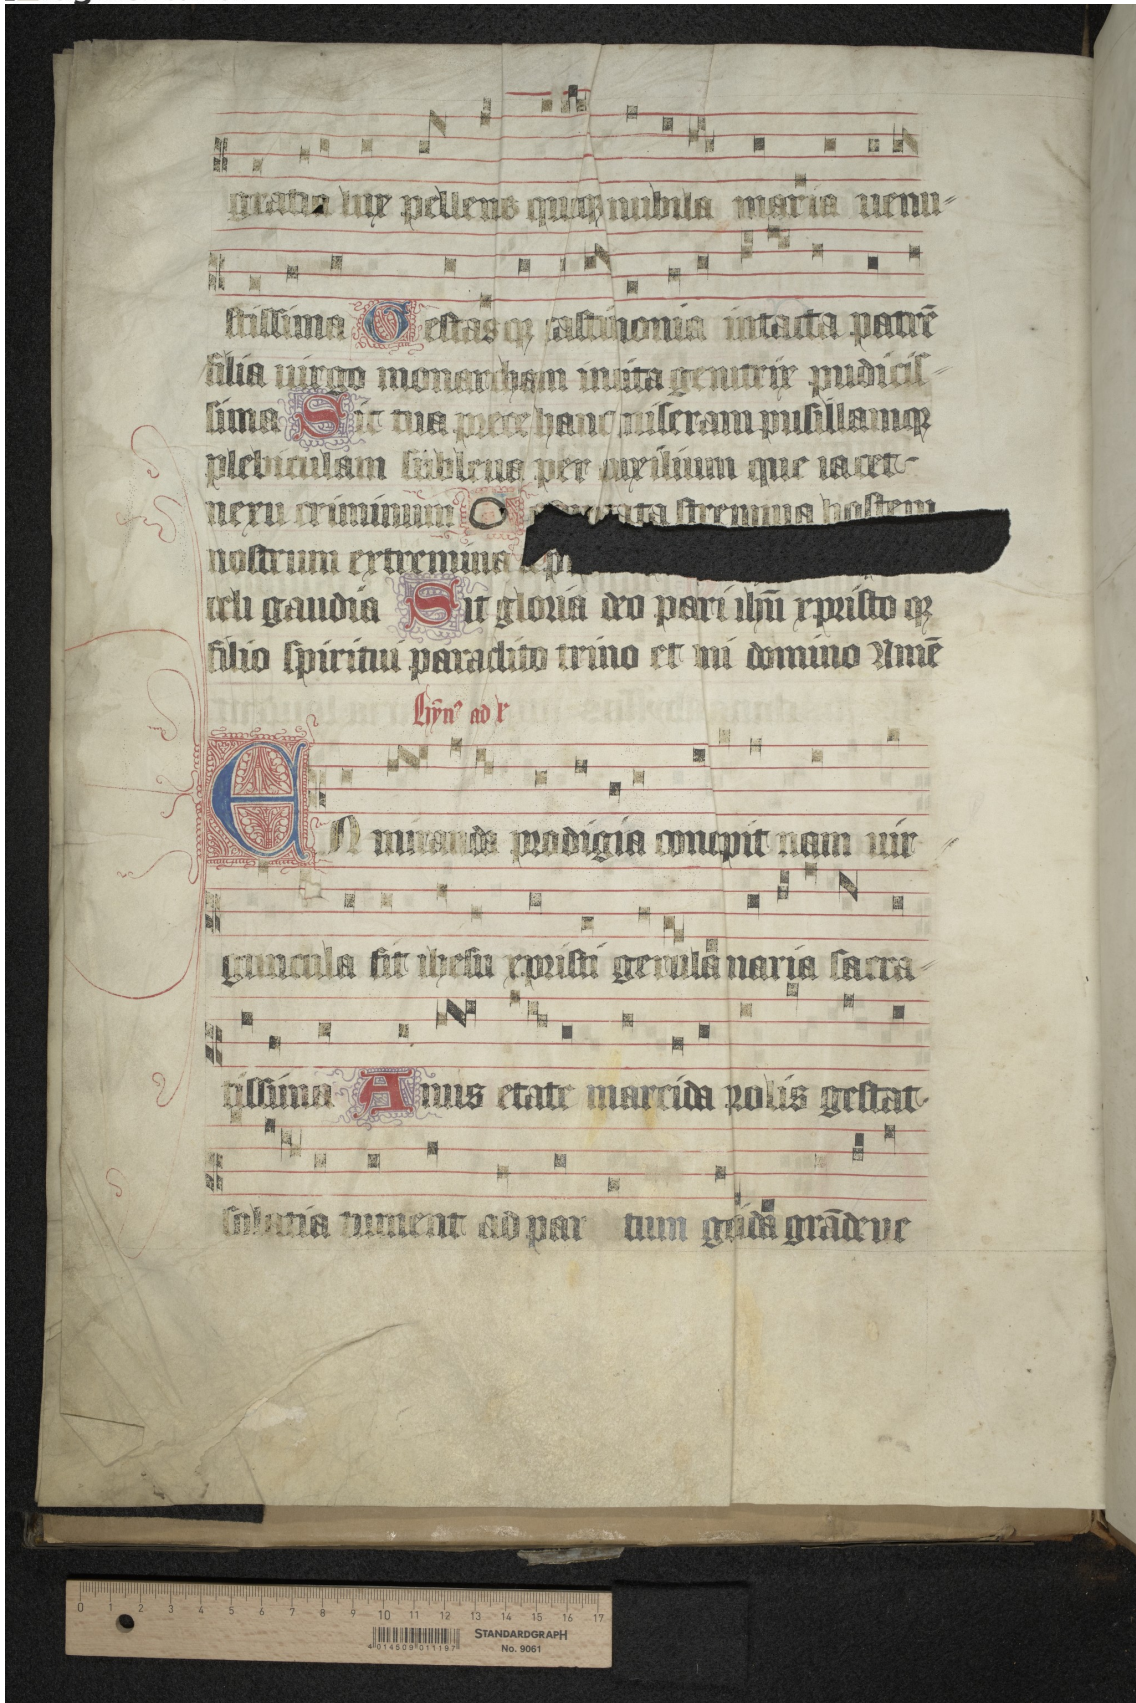 gratia lux pellens quoqꝫ nubila maria uenu-
stissima Gestasqꝫ castimonia intacta patrē
filia uirgo monarcham inuita genitrix pudicis-
sima Sit tua prece hanc miseram pusillamqꝫ
plebiculam subleua per auxilium que iacet
nexu criminum O strennua hostem
nostrum extremina
celi gaudia Sit gloria deo pari ihū xpristo qꝫ
filio spiritui paraclito trino et uni domino Amē
Hyn⁹ ad
EN miranda prodigia concepit nam uir-
guncula sit ihesu xpristi gerula naria sacra-
tissima Anus etate marcida polis gestat
solatia tument ad partum grāde ue
0 1 2 3 4 5 6 7 8 9 10 11 12 13 14 15 16 17
4 014509 011197
STANDARDGRAPH
No. 9061